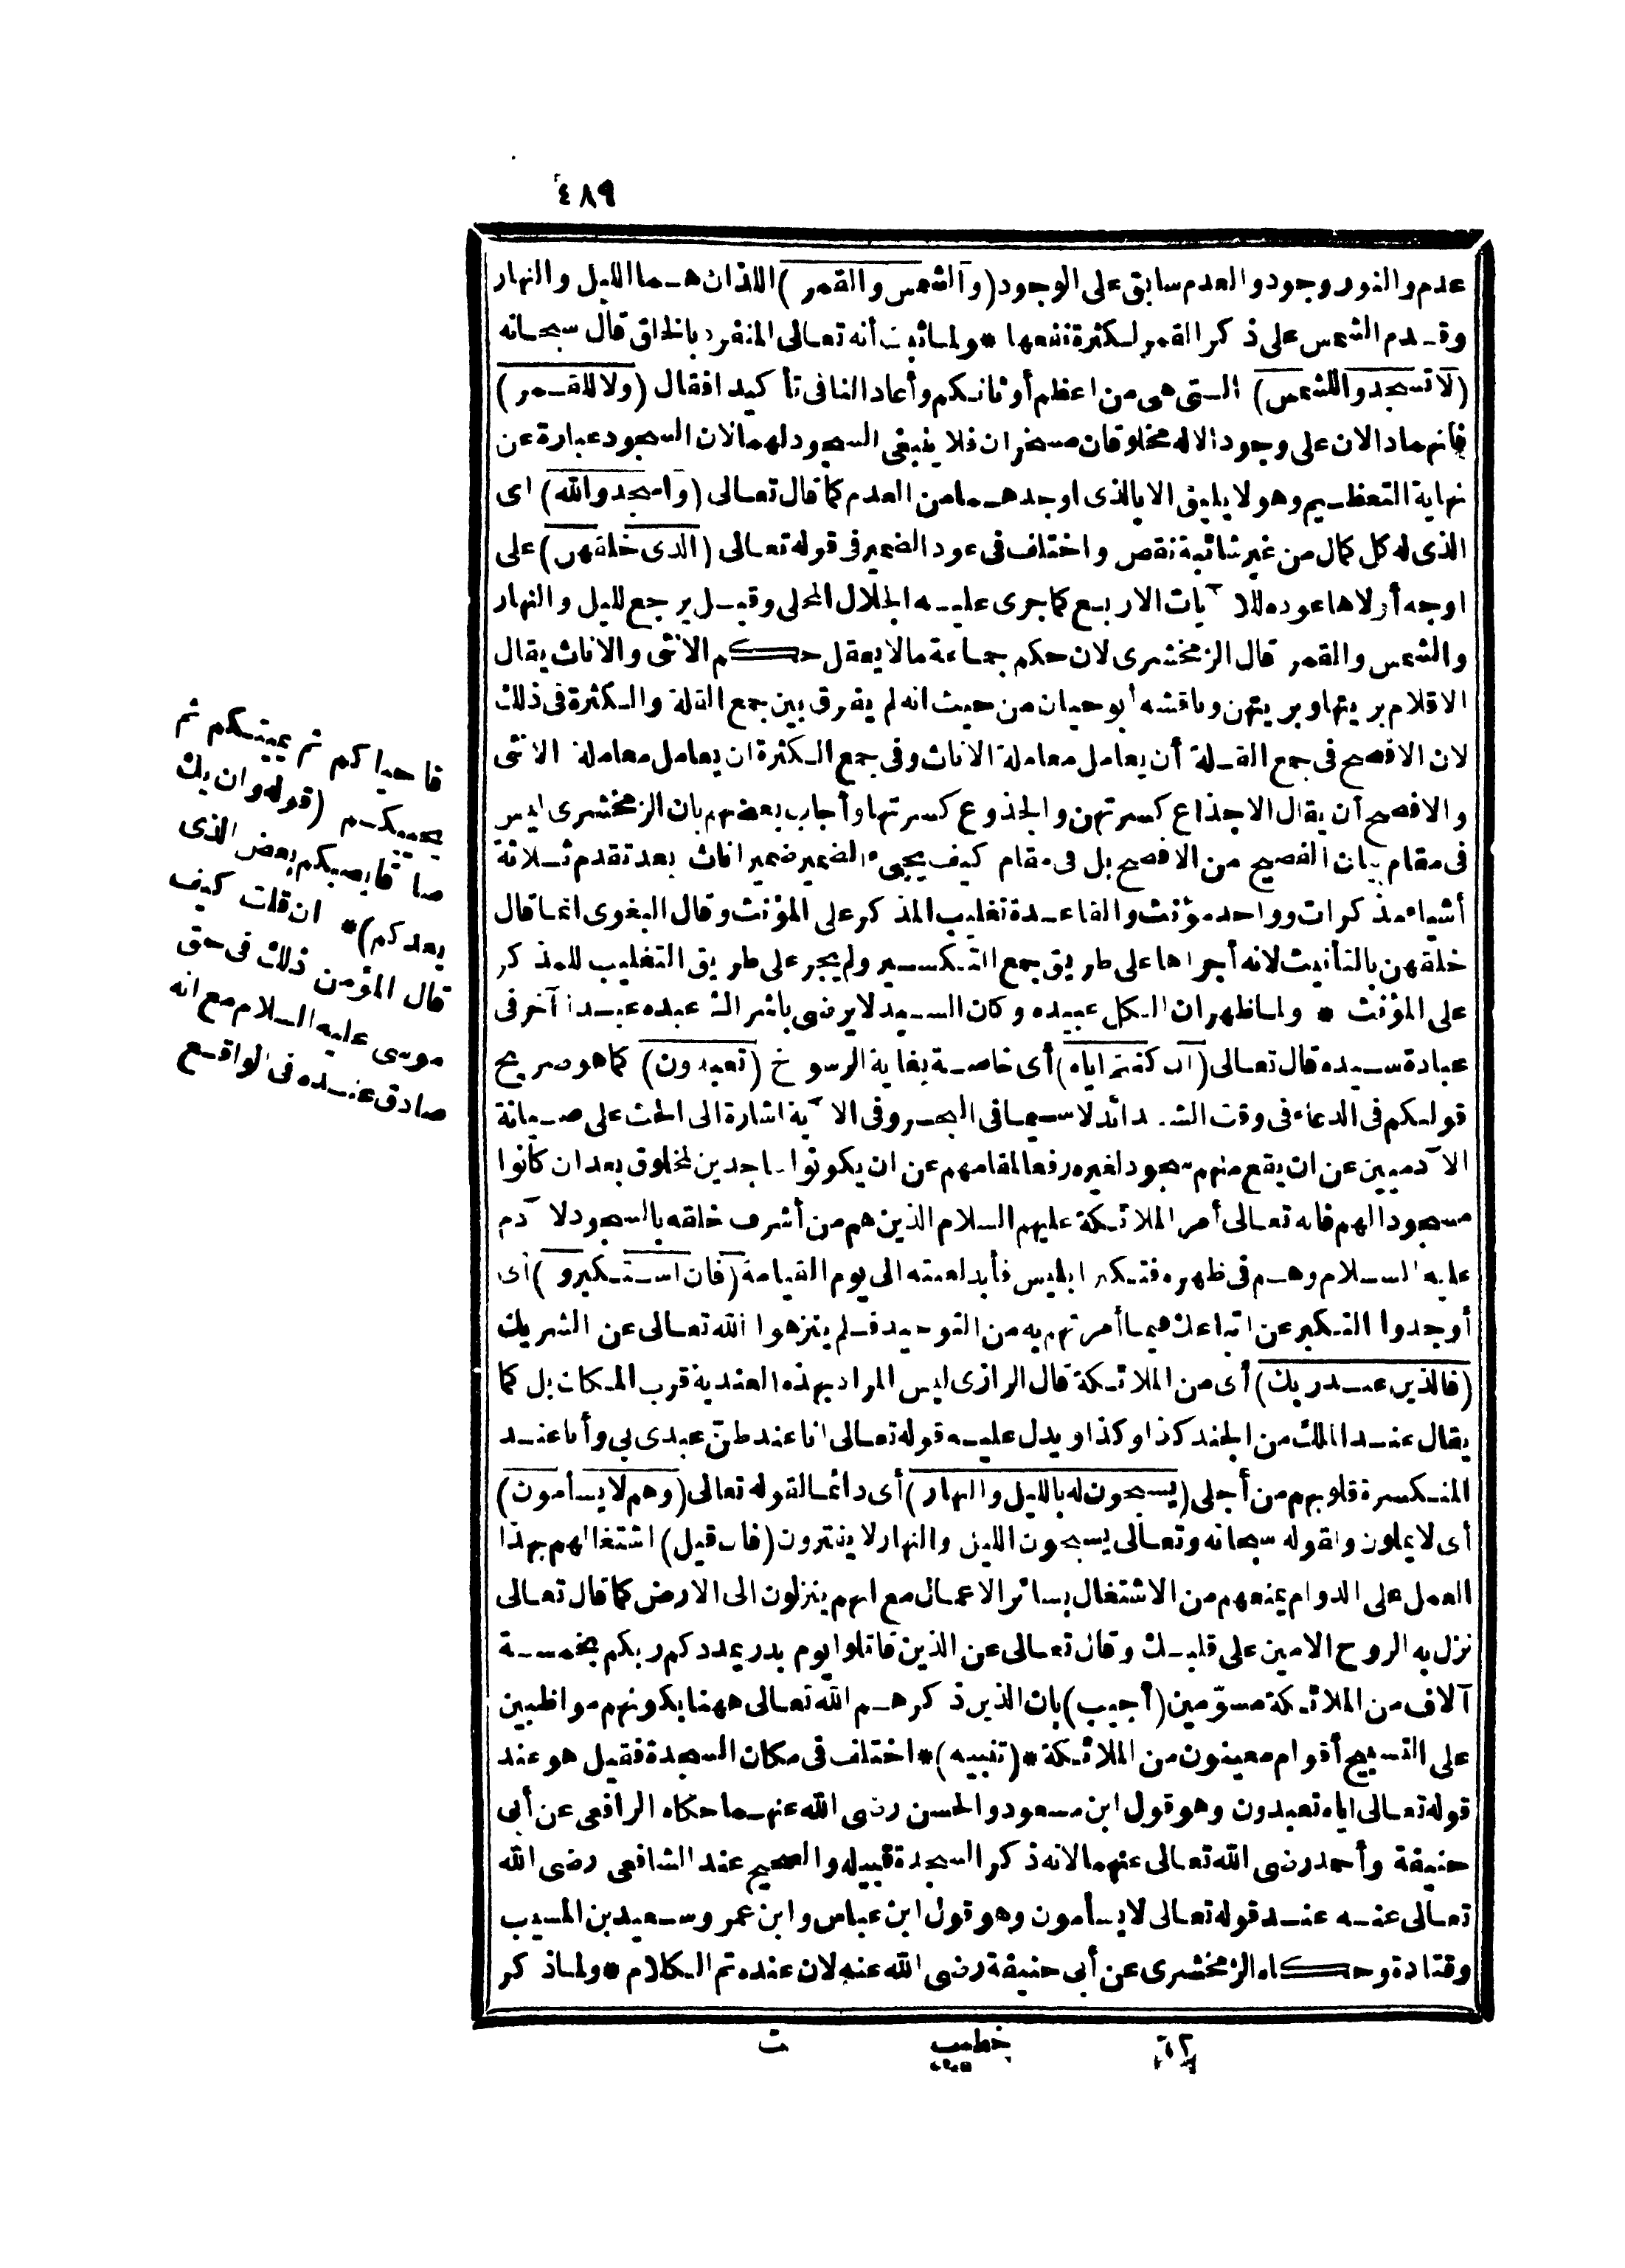 ٤٨٩
عدم والنور وجود والعدم سابق على الوجود (والشمس والقمر) اللذان هما الليل والنهار
وقدم الشمس على ذكر القمر لكثرة نفعها * ولما ثبت أنه تعالى المنفرد بالخلق قال سبحانه
(لا تسجدوا للشمس) التي هي من اعظم أوثانكم وأعاد النافي تأكيدا فقال (ولا للقمر)
فانهما دالان على وجود الاله مخلوقان مسخران فلا ينبغي السجود لهما لان السجود عبارة عن
نهاية التعظيم وهو لا يليق الا بالذى اوجدهما من العدم كما قال تعالى (واسجدوا لله) اى
الذى له كل كمال من غير شائبة نقص واختلف فى عود الضمير فى قوله تعالى (الذى خلقهن) على
اوجه أولاها عوده للآيات الاربع كما جرى عليه الجلال المحلى وقيل يرجع لليل والنهار
والشمس والقمر قال الزمخشرى لان حكم جماعة ما لا يعقل حكم الانثى والاناث يقال
الاقلام بريتها وبريتهن وناقشه أبو حيان من حيث انه لم يفرق بين جمع القلة والكثرة فى ذلك
لان الافصح فى جمع القلة أن يعامل معاملة الاناث وفى جمع الكثرة ان يعامل معاملة الانثى
والافصح أن يقال الاجذاع كسرتهن والجذوع كسرتها وأجاب بعضهم بان الزمخشرى ليس
فى مقام بيان الفصيح من الافصح بل فى مقام كيف يجىء الضمير ضمير اناث بعد تقدم ثلاثة
أشياء مذكرات وواحد مؤنث والقاعدة تغليب المذكر على المؤنث وقال البغوى انما قال
خلقهن بالتأنيث لانه أجراها على طريق جمع التكسير ولم يجر على طريق التغليب للمذكر
على المؤنث * ولما ظهر ان الكل عبيده وكان السيد لا يرضى باشراك عبده عبدا آخر فى
عبادة سيده قال تعالى (ان كنتم اياه) أى خاصة بغاية الرسوخ (تعبدون) كما هو صريح
قولكم فى الدعاء فى وقت الشدائد لا سيما فى البحر وفى الآية اشارة الى الحث على صيانة
الآدميين عن ان يقع منهم سجود لغيره رفعا لمقامهم عن ان يكونوا ساجدين لمخلوق بعد ان كانوا
مسجودا لهم فانه تعالى أمر الملائكة عليهم السلام الذين هم من أشرف خلقه بالسجود لآدم
عليه السلام وهم فى ظهره فتكبر ابليس فأبد لعنته الى يوم القيامة (فان استكبروا) أى
أوجدوا التكبر عن اتباعك فيما أمرتهم به من التوحيد فلم ينزهوا الله تعالى عن الشريك
(فالذين عند ربك) أى من الملائكة قال الرازى ليس المراد بهذه العندية قرب المكان بل كما
يقال عند الملك من الجند كذا وكذا ويدل عليه قوله تعالى انا عند ظنّ عبدى بى وأنا عند
المنكسرة قلوبهم من أجلى (يسبحون له بالليل والنهار) أى دائما لقوله تعالى (وهم لا يسأمون)
أى لا يملون ولقوله سبحانه وتعالى يسبحون الليل والنهار لا يفترون (فان قيل) اشتغالهم بهذا
العمل على الدوام يمنعهم من الاشتغال بسائر الاعمال مع انهم ينزلون الى الارض كما قال تعالى
نزل به الروح الامين على قلبك وقال تعالى عن الذين قاتلوا يوم بدر يمددكم ربكم بخمسة
آلاف من الملائكة مسوّمين (أجيب) بان الذين ذكرهم الله تعالى ههنا بكونهم مواظبين
على التسبيح أقوام معينون من الملائكة * (تنبيه) * اختلف فى مكان السجدة فقيل هو عند
قوله تعالى اياه تعبدون وهو قول ابن مسعود والحسن رضى الله عنهما حكاه الرافعى عن أبى
حنيفة وأحمد رضى الله تعالى عنهما لانه ذكر السجدة قبيله والصحيح عند الشافعى رضى الله
تعالى عنه عند قوله تعالى لا يسأمون وهو قول ابن عباس وابن عمر وسعيد بن المسيب
وقتادة وحكاه الزمخشرى عن أبى حنيفة رضى الله عنه لان عنده تم الكلام * ولما ذكر
فاحياكم ثم يميتكم ثم
يحييكم (قوله وان يك
صا قا يصبكم بعض الذى
يعدكم) * ان قلت كيف
قال المؤمن ذلك فى حق
موسى عليه السلام مع انه
صادق عنده فى الواقع
خطيب
ت